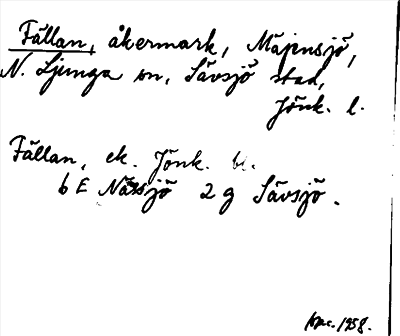 Fällan, åkermark, Mäjensjö,
N. Ljunga sn, Sävsjö stad,
Jönk. l.
Fällan, ek. Jönk. bl.
6 E Nässjö 2 g Sävsjö.
1958.